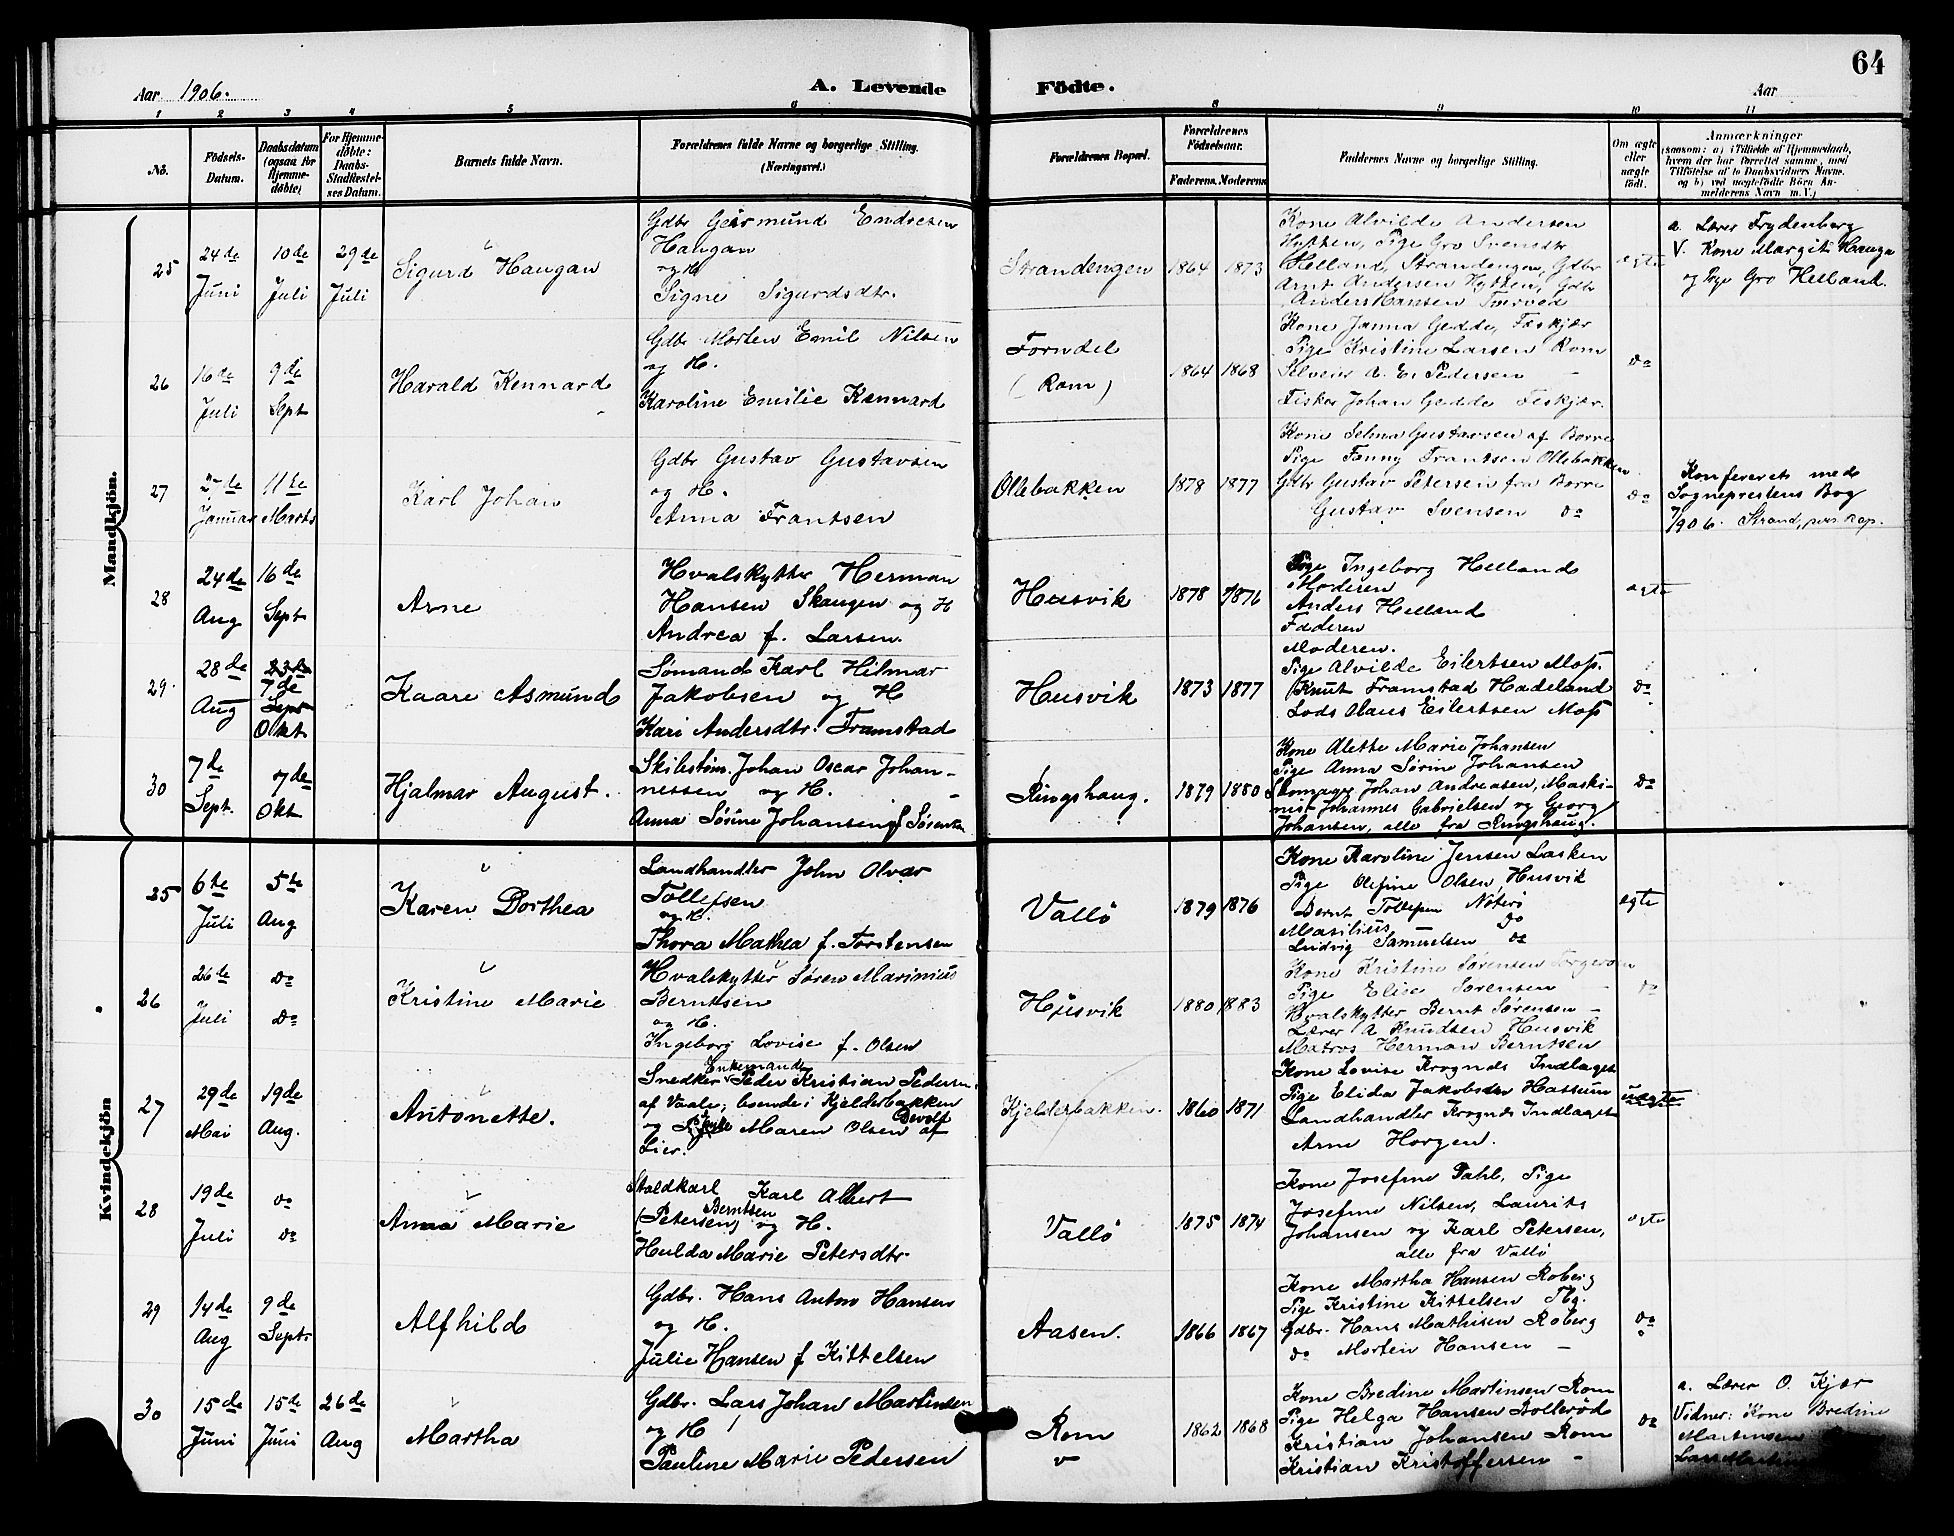 64
Aar 1906. A. Levende Födte. Aar
1 2 3 4 5 6 8 9 10 11
No.
Födsels-Datum.
Daabsdatum (ogsaa for Hjemmedöbte)
For Hjemmedöbte: Daabs-Stadfæstelses Datum.
Barnets fulde Navn.
Forældrenes fulde Navne og borgerlige Stilling.
(Næringsvei.)
Forældrenes Bopæl.
Forældrenes Födselsaar.
Faderens. Moderens.
Faddernes Navne og borgerlige Stilling.
Om ægte eller uægte födt.
Anmærkninger
(saasom: a) i Tilfælde af Hjemmedaab,
hvem der har forrettet samme, med
Tilföielse af to Daabsvidners Navne,
og b) ved uægtefödte Börn An-
melderens Navn m. V.)
Mandkjön.
25
24de Juni
10de Juli
29de Juli
Sigurd Haugan
Gdbr Geirmund Endresen
Haugan
og H
Signe Sigurdsdtr.
Strandengen
1864 1873
Kone Alvilde Andersen
Hytten, Pige Gro Svensdtr
Helland, Strandengen, Gdbr
Arnt Andersen Hytten, Gdbr
Anders Hansen
ægte
a. Lærer Frydenberg
V. Kone Margit Hauga
og Pige Gro Helland.
26
16de Juli
9de Sept
Harald Kennard
Gdbr Morten Emil Nilsen
og H.
Karoline Emilie Kennard
Forndel
(Rom)
1864 1868
Kone Janna Gedde, Fæskjær
Pige Kristine Larsen Rom
Selveier A. E. Pedersen –
Fisker Johan Gedde Feskjær.
Do
27
27de Januar
11te Marts
Karl Johan
Gdbr Gustav Gustavsen
og H.
Anna Frantsen
Ollebakken
1878 1877
Kone Selma Gustavsen af Borre
Pige Fanny Frantsen Ollebakken
Gdbr Gustav Petersen fra Borre
Gustav Svensen do
Do
Konfereret med
Sogneprestens Bog
7/906. Strand, pers kap.
28
24de Aug
16de Sept
Arne
Hvalskytter Herman
Hansen Skaugen og H
Andrea f. Larsen.
Husvik
1878 1876
Pige Ingeborg Helland
Moderen
Anders Helland
Faderen
ægte
29.
28de Aug
23de 7de Sept Okt
Kaare Asmund
Sømand Karl Hilmar
Jakobsen og H
Kari Andersdtr. Framstad
Husvik
1873 1877
Moderen.
Pige Alvilde Eilertsen Moss.
Knut Framstad Hadeland
Lods Olaus Eilertsen Moss
Do
30
7de Sept.
7de Okt
Hjalmar August.
Skibstøm. Johan Oscar Johan-
nessen og H.
Anna Sørine Johansen f Sørensen
Ringshaug.
1879 1880
Kone Alette Marie Johansen
Pige Anna Sørine Johansen
Skomager Johan Andreasen, Maski-
nist Johannes Gabrielsen og Georg
Johansen, alle fra Ringshaug.
Do
Kvindekjön
25
6te Juli
5te Aug
Karen Dorthea
Landhandler John Olvar
Tollefsen
og H.
Thora Mathea f. Torstensen
Vallö
1879 1876
Kone Karoline Jensen Lasken
Pige Olefine Olsen, Husvik
Bernt Tollefsen Nøterö
Masilius – Do
Ludvig Samuelsen Do
ægte
26
26te Juli
do Do
Kristine Marie
Hvalskytter Søren Marinius
Berntsen
og H.
Ingeborg Lovise f. Olsen
Husvik
1880 1883
Kone Kristine Sørensen Torgersen
Pige Elise Sørensen –
Hvalskytter Bernt Sørensen –
Lærer A. Knudsen Husvik
Matros Herman Berntsen
do
27
29de Mai
19de Aug.
Antonette.
Enkemand
Snedker Peder Kristian Pedersen
af Vaale, boende i Kjelderbakken
og Pige Maren Olsen Devold af
Lier.
Kjelderbakken.
1860 1871
Kone Lovise Krognes Indlaget
Pige Elida Jakobsen Hassum
Landhandler Krognes Indlaget
Arne Horgen.
uægte
28
19de Juli
do do
Anna Marie
Staldkarl Karl Albert
Berntsen
(Petersen) og H.
Hulda Marie Petersdtr
Vallö
1875 1874
Kone Josefine Dahl, Pige
Josefine Nilsen, Laurits
Johansen og Karl Petersen,
alle fra Vallö
ægte
29
14de Aug
9de Septr
Alfhild
Gdbr. Hans Anton Hansen
og H.
Julie Hansen f Kittelsen
Aasen.
1866 1867
Kone Martha Hansen Roberg
Pige Kristine Kittelsen Tbg.
Gdbr. Hans Mathisen Roberg
do Morten Hansen –
do
30
15de Juni
15de Juni
26de Aug
Martha
Gdbr. Lars Johan Martinsen
og H
Pauline Marie Pedersen
Rom
1862 1868
Kone Bredine Martinsen Rom
Pige Helga Hansen Bollerød
Kristian Johansen Rom
Kristian Kristoffersen –
do
a. Lærer O. Kjær
Vidner: Kone Bredine
Martinsen
Lars